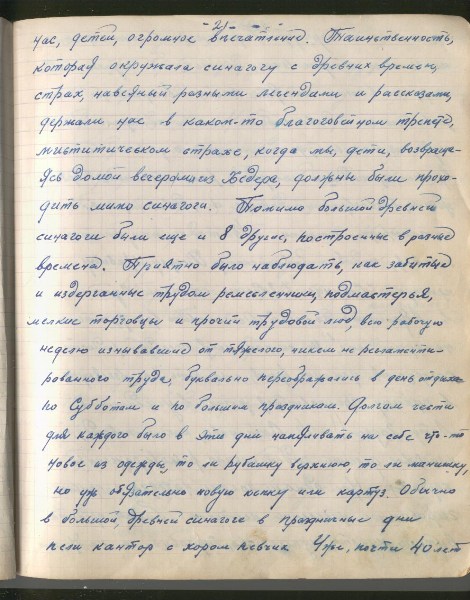 - 21 -
нас, детей, огромное впечатление. Таинственность,
которая окружала синагогу с древних времен,
страх, навеянный разными легендами и рассказами,
держали нас в каком-то благоговейном трепете,
мистическом страхе, когда мы, дети, возвраща-
ясь домой вечерами из Хедера, должны были прохо-
дить мимо синагоги. Помимо большой древней
синагоги были еще и 8 других, построенные в разные
времена. Приятно было наблюдать, как забитые
и издерганные трудом ремесленники, подмастерья,
мелкие торговцы и прочий трудовой люд, всю рабочую
неделю изнывавшие от тяжелого, никем не регламенти-
рованного труда, буквально преображались в день отдыха
по Субботам и по большим праздникам. Долгом чести
для каждого было в эти дни напяливать на себе что-то
новое из одежды, то ли рубашку верхнюю, то ли манишку,
но уж обязательно новую кепку или картуз. Обычно
в большой, древней синагоге в праздничные дни
пели кантор с хором певчих. Уже, почти 40 лет